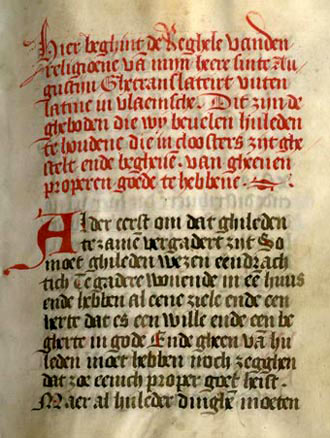 Hier beghint de Reghele vanden
religioene vā mijn heere sinte Au
gustijn Ghetranslateirt vuten
latine in vlaemsche. Dit zijn de
gheboden die wy beuelen huleden
te houdene die in cloosters zijt ghe
stelt ende begheuē. van gheenen
properen goede te hebbene.
Alder eerst om dat ghileden
te zamē vergadert zijt So
moet ghileden wezen eendrach
tich Te gadere wonende in eē huus
ende hebben al eene ziele ende een
herte dat es een wille ende een be
gherte in gode Ende gheen vā hu
leden moet hebben noch zegghen
dat zoe eenich proper goet heift.
Maer al huleder dinghē moeten